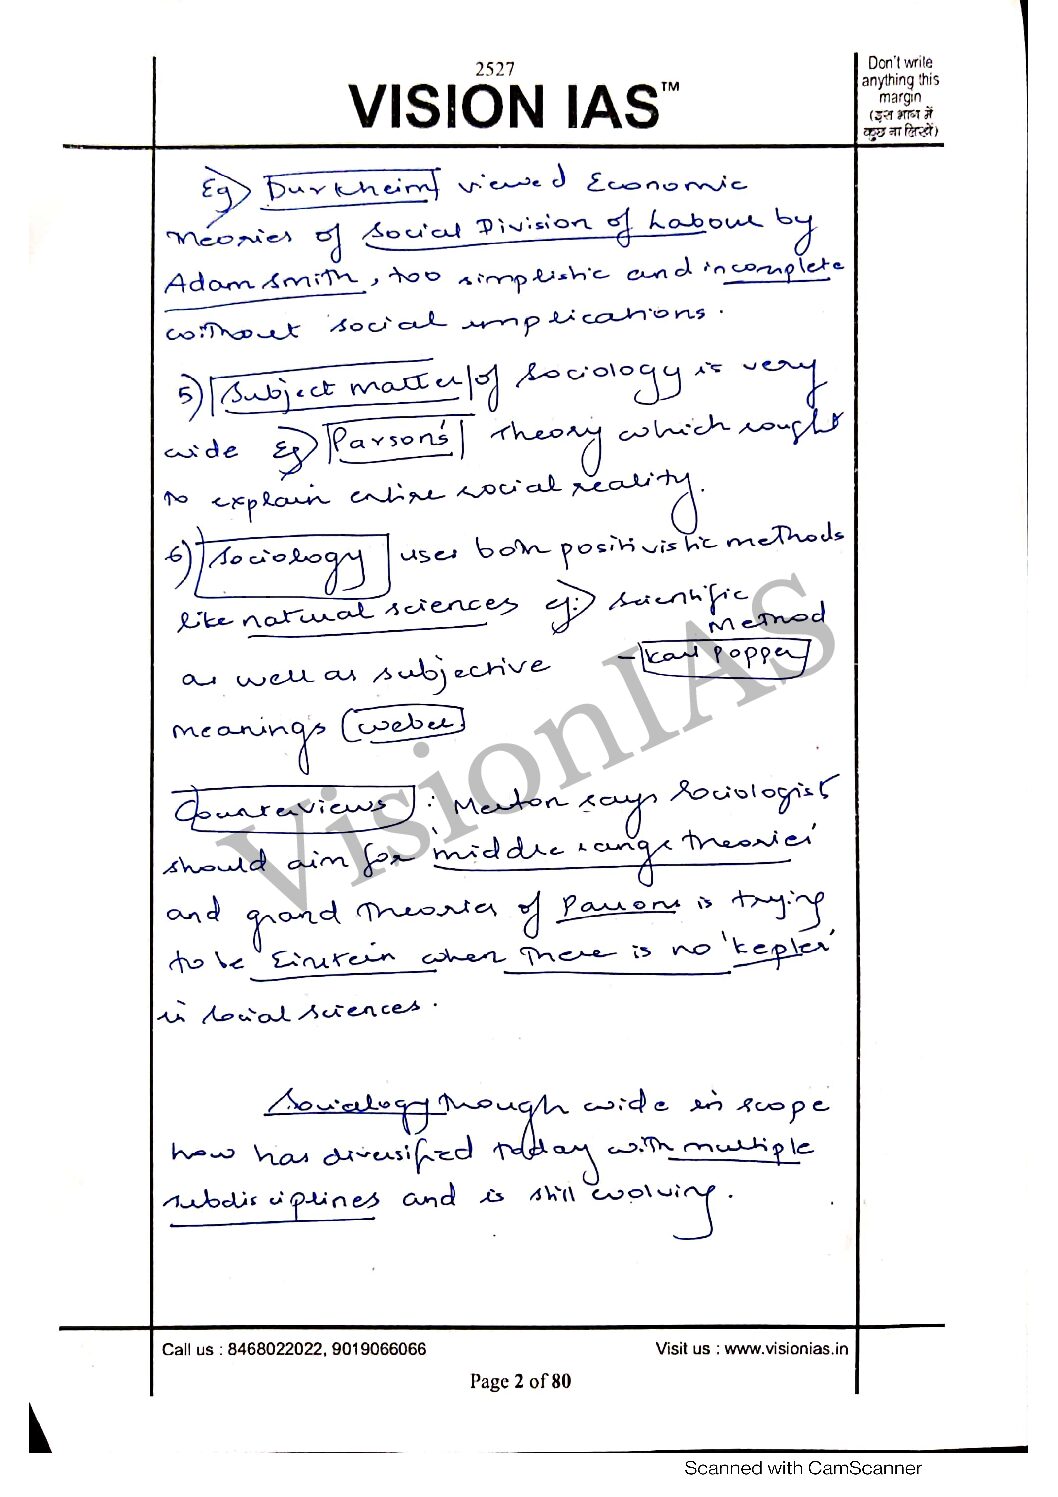 2527
VISION IAS™
Don't write
anything this
margin
(इस भाग में
कुछ ना लिखें)
Eg) Durkheim viewed Economic
theories of Social Division of Labour by
Adam Smith, too simplistic and incomplete
without social implications.
5) Subject matter of Sociology is very
wide Eg) Parson's Theory which sought
to explain entire social reality.
6) Sociology uses both positivistic methods
like natural sciences eg:) Scientific
Method
- Karl Popper
as well as subjective
meanings (Weber)
Counterviews : Merton says Sociologist
should aim for 'middle range theories'
and grand theories of Parsons is trying
to be Einstein when there is no 'Kepler'
in social sciences.
Sociology though wide in scope
now has diversified today with multiple
subdisciplines and is still evolving.
VisionIAS
Call us : 8468022022, 9019066066
Visit us : www.visionias.in
Page 2 of 80
Scanned with CamScanner